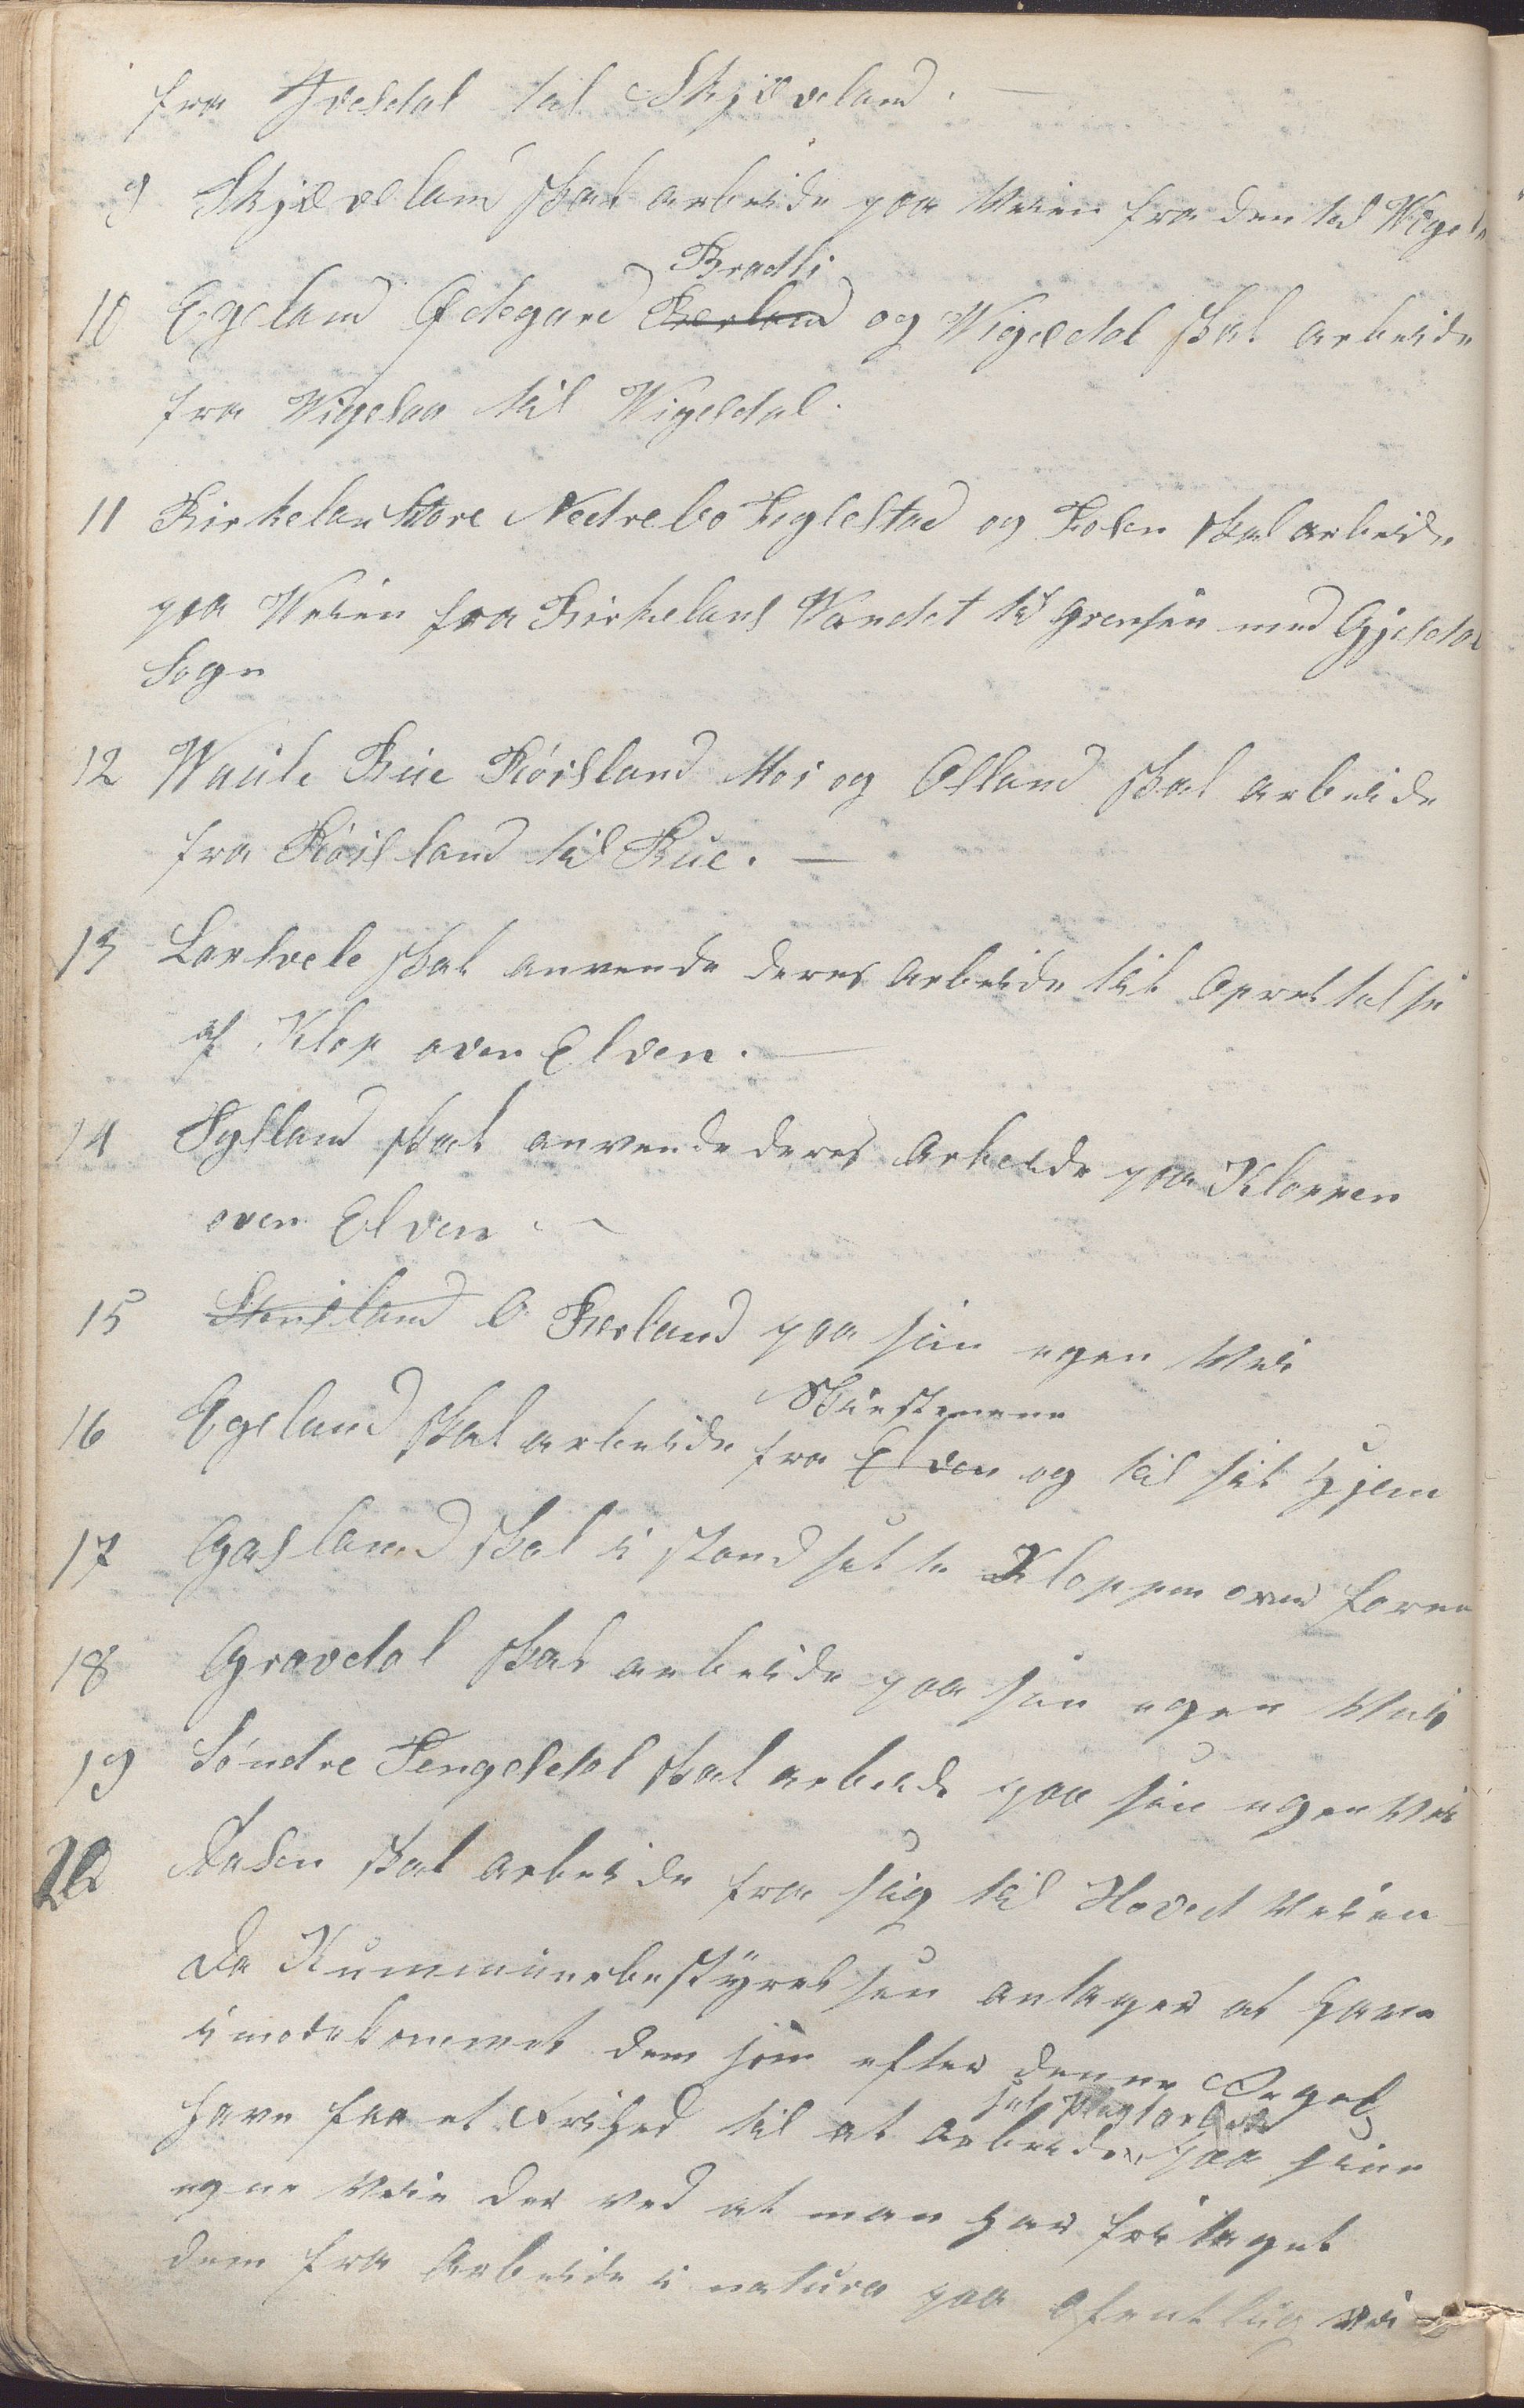 fra Ivesdal til Skjæveland. —
9 Skjæveland skal arbeide paa Veien fra den til Vigesaa
Bradli
10 Egeland Ødegard Berland og Vigesdal skal arbeide
fra Vigesaa til Vigesdal.
11 Kirkeland Hove Nedrebo Teglestad og Fosen skal arbeide
paa Veien fra Kirkelands Vandet til Grensen med Gjesdal
Sogn
12 Waule Bue Røisland Moi og Østland skal arbeide
fra Røisland til Bue. —
13 Lortvete skal anvende deres Arbeide til Oprettelse
af Klop over Elven. —
14 Tysland skal anvende deres Arbeide paa Kloppen
over Elven. —
15 Stensland O Berland paa sin egen Vei
Skiestenene
16 Egeland skal arbeide fra Elven og til sit Hjem
17 Gasland skal i stand sette Kloppen over
18 Gravdal skal arbeide paa sin egen Vei
19 Søndre Tengesdal skal arbeide paa sin egen Vei
20 Aasen skal arbeide fra sig til Hoved Veien
Da Kummunebestyrelsen antager at have
imødekommet dem som efter denne Regel
sit Pligtarbeide
have faaet Frihed til at Arbeide paa sine
egne Veie der ved at man har fritaget
dem fra Arbeide i natura paa Ofentlig vei